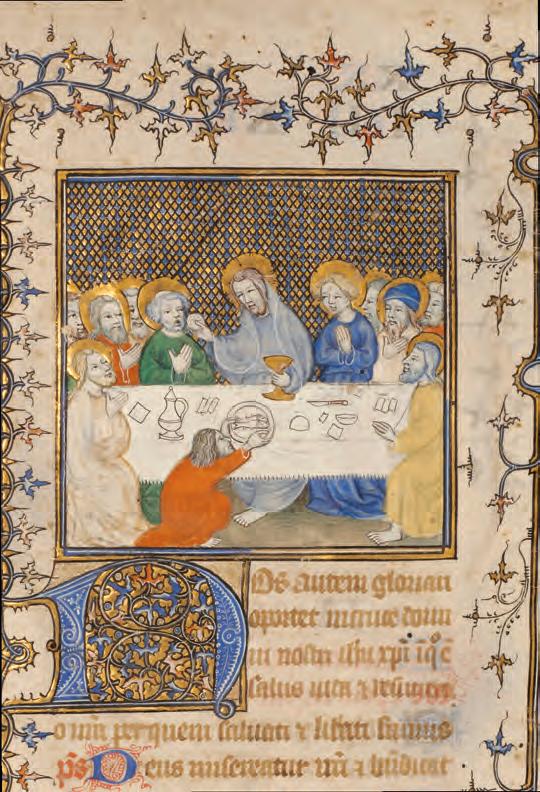 Nos autem gloriari
oportet in cruce domi
ni nostri ihu xpi ī q̄ ē
salus uita ⁊ resurrec
o nr̄a per quem saluati ⁊ liberati sumus
ps Deus misereatur nr̄i ⁊ benedicat